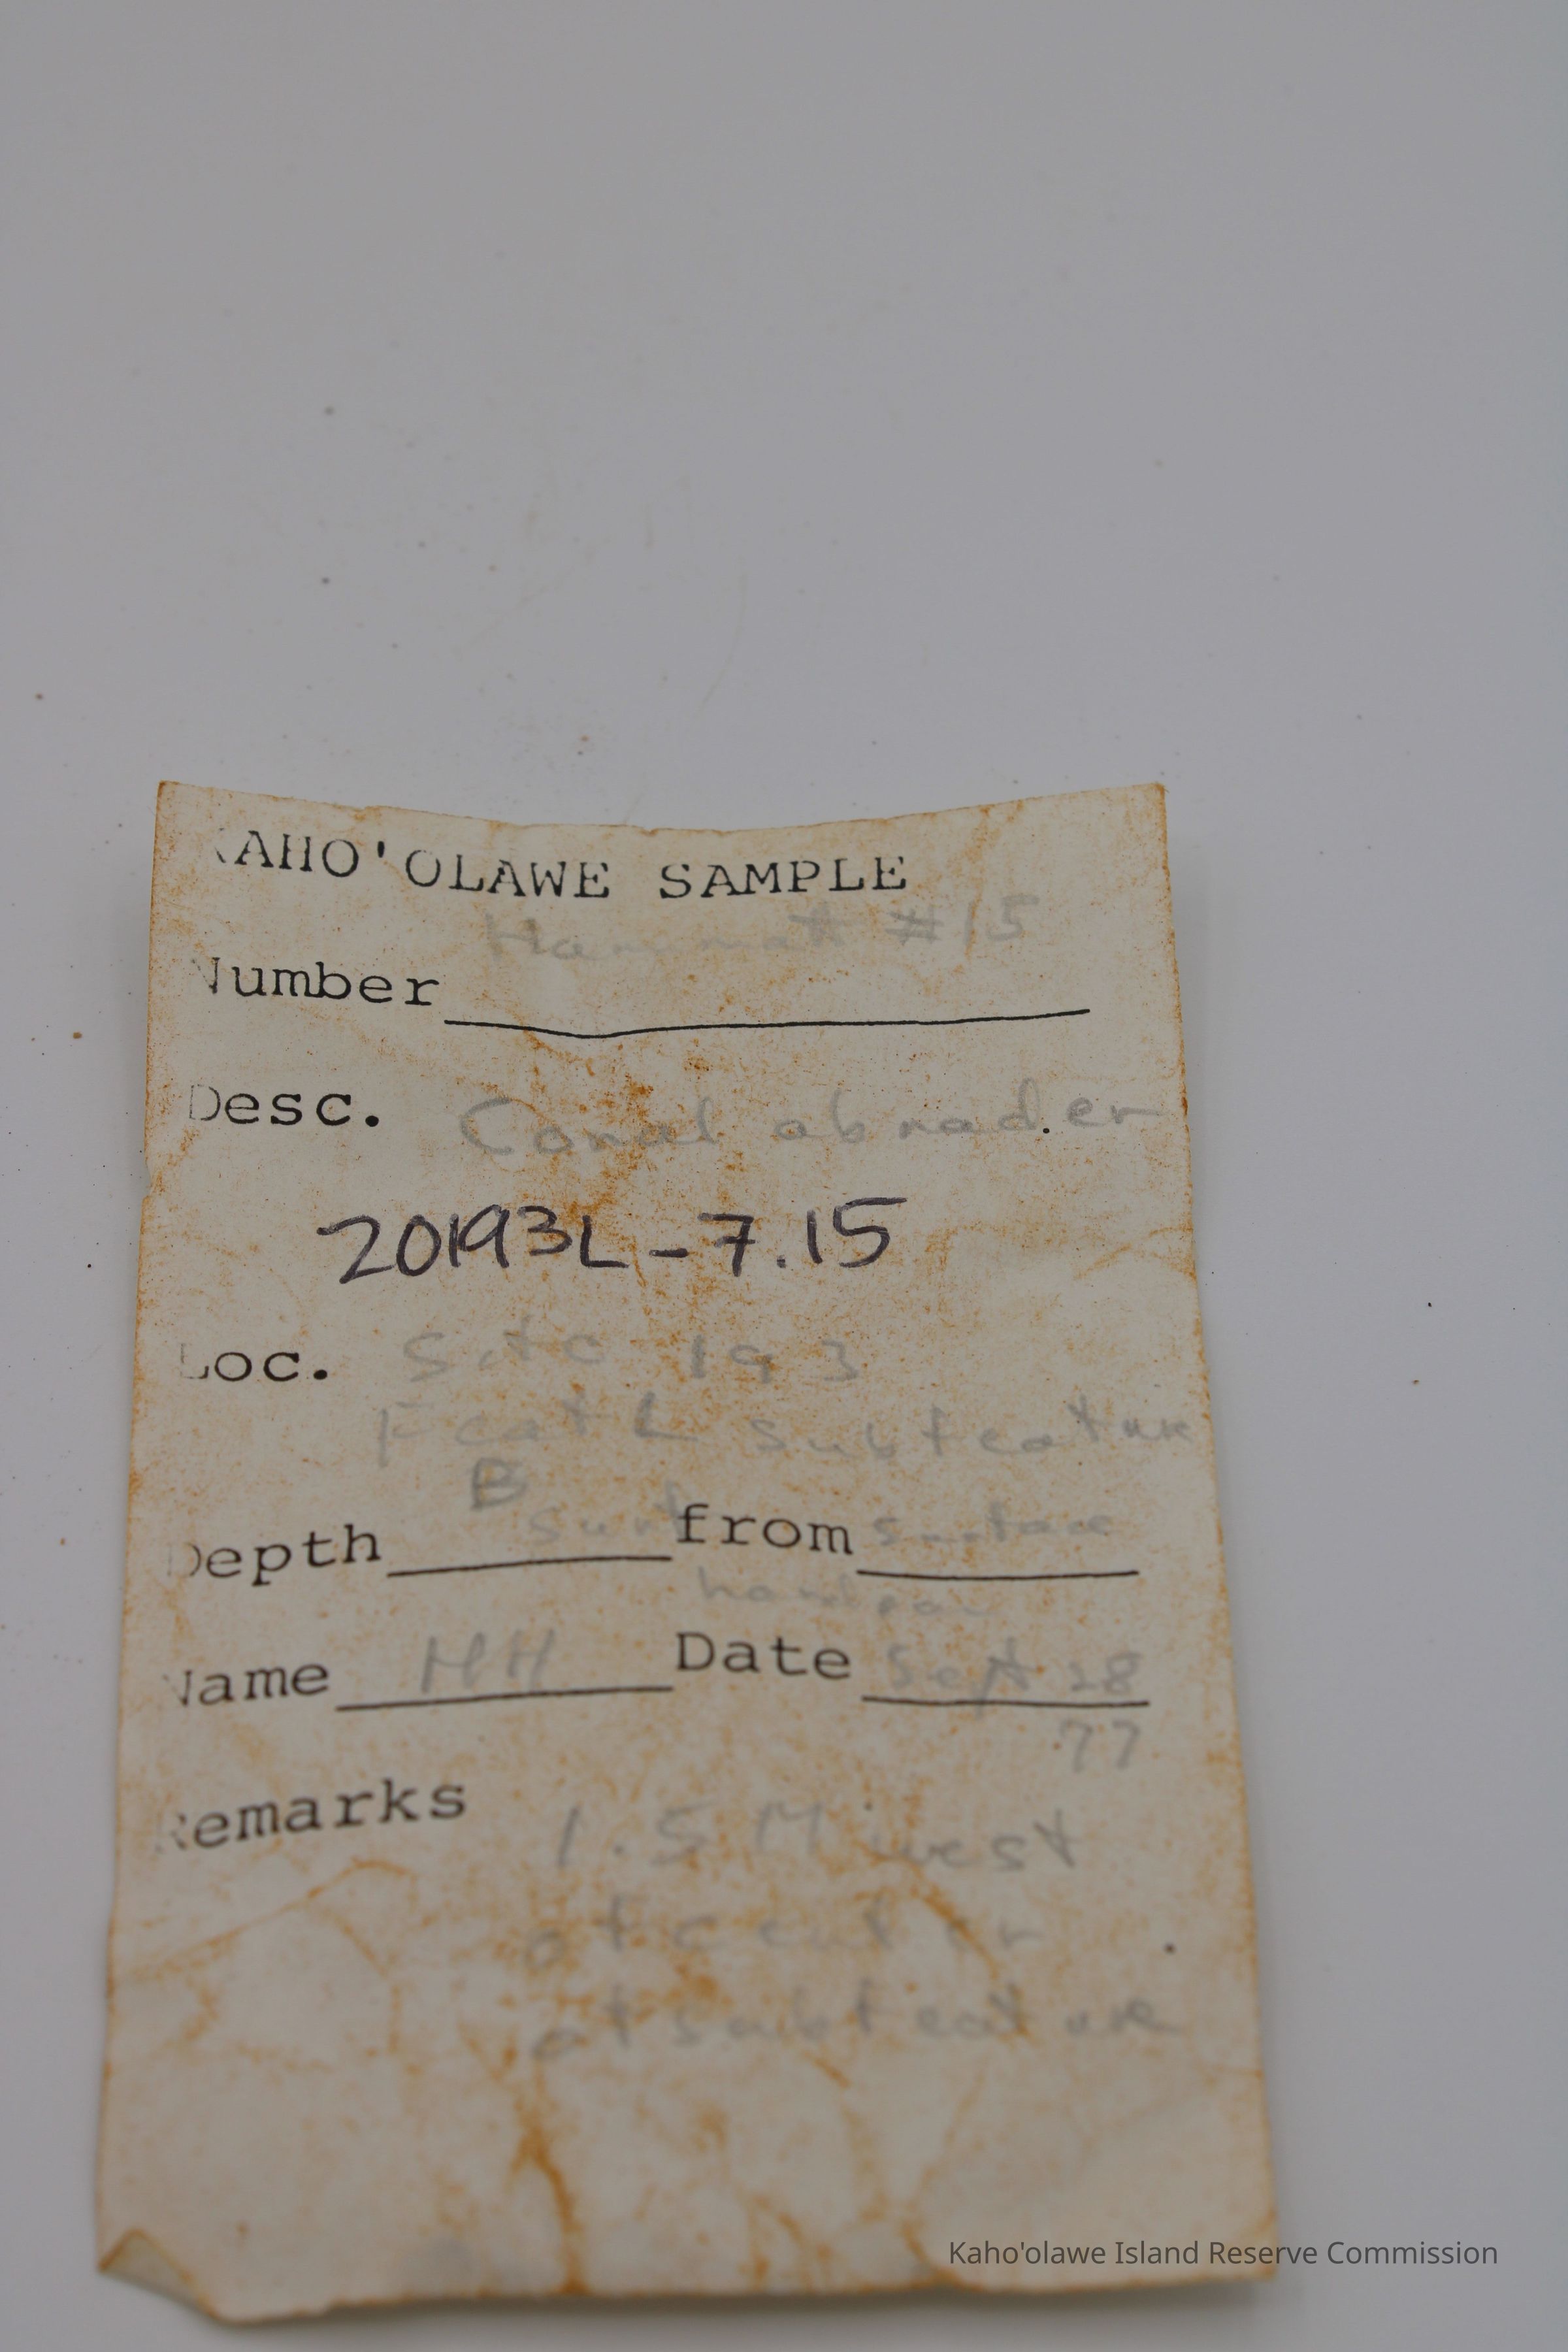 KAHO'OLAWE SAMPLE
Hammatt #15
Number
Desc. Coral abrader
20193L-7.15
Loc. Site 193
Feat L subfeature
B
Depth surf from surface
hardpan
Name HH Date Sept 28
77
Remarks 1.5 M west
of center
of subfeature
Kaho'olawe Island Reserve Commission